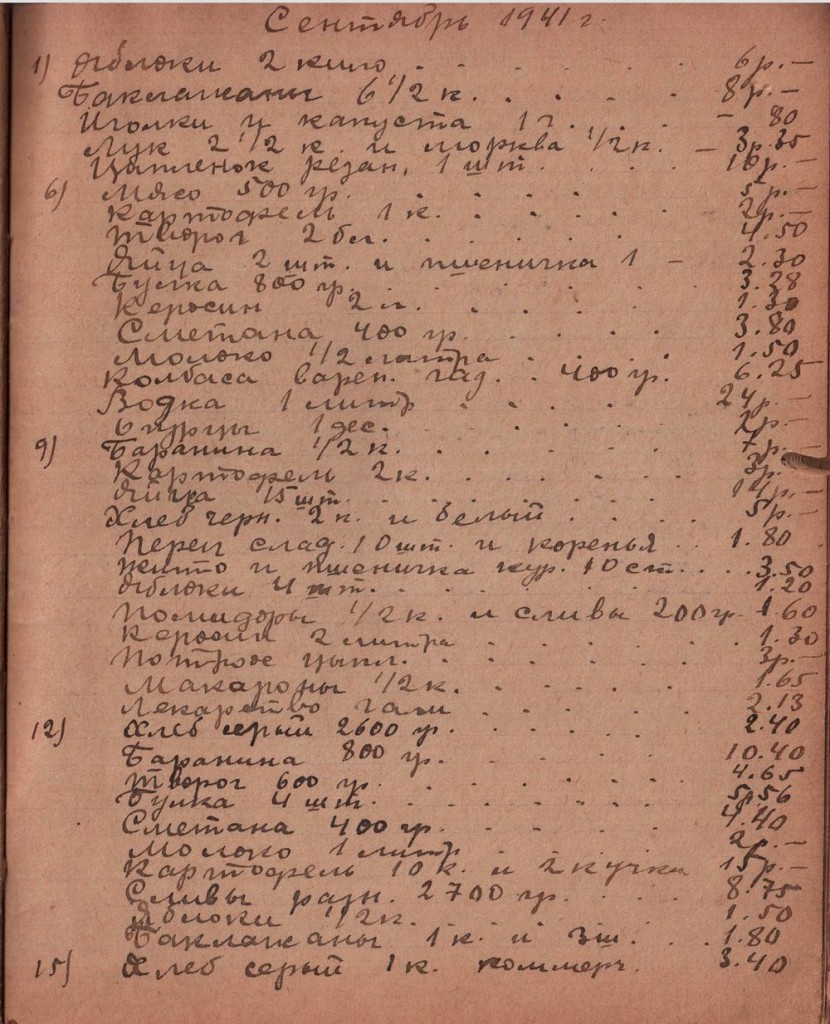 Сентябрь 1941 г.
1) Яблоки 2 кило . . . . . . 6 р. —
Баклажаны 6 1/2 к. . . . . 8 р. —
Иголки и капуста 1 г. . . . — 80
Лук 2 1/2 к. и морква 1/2 к. — 3р.35
Цыпленок резан. 1 шт. . . . р. —
6) Мясо 500 гр. . . . . . 5 р. —
Картофель 1 к. . . . . . 2 р. —
Творог 2 . . . . . 4.50
Яйца 2 шт. и пшеничка 1 — 2.30
Булка 800 гр. . . . . . 3.28
Керосин 2 л. . . . . . 1.30
Сметана 400 гр. . . . . 3.80
Молоко 1/2 литра . . . . 1.50
Колбаса варен. . . 400 гр. 6.25
Водка 1 литр . . . . . 24 р. —
Огурцы 1 дес. . . . . . 2 р. —
9) Баранина 1/2 к. . . . . 7 р. —
Картофель 2 к. . . . . . 3 р.
Яйца 15 шт. . . . . . р. —
Хлеб черн. 2 к. и белый . . . 5 р. —
Перец слад. 10 шт. и коренья . . 1.80
Жито и пшеничка кур. 10 ст. . . . 3.50
Яблоки 4 шт. . . . . . 1.20
Помидоры 1/2 к. и сливы 200 гр. 1.60
Керосин 2 литра . . . . 1.30
Потрое цыпл. . . . . . 3 р. —
Макароны 1/2 к. . . . . . 1.65
Лекарство Гали . . . . . 2.13
12) Хлеб серый 2600 гр. . . . . 2.40
Баранина 800 гр. . . . . 10.40
Творог 600 гр. . . . . . 4.65
Булка 4 шт. . . . . . 5р.56
Сметана 400 гр. . . . . 4.40
Молоко 1 литр . . . . 2 р. —
Картофель 10 к. и 2 кучки 15 р. —
Сливы разн. 2700 гр. . . . 8.75
Яблоки 1/2 к. . . . . . 1.50
Баклажаны 1 к. и 3 ш. . . . 1.80
15) Хлеб серый 1 к. коммерч. 3.40